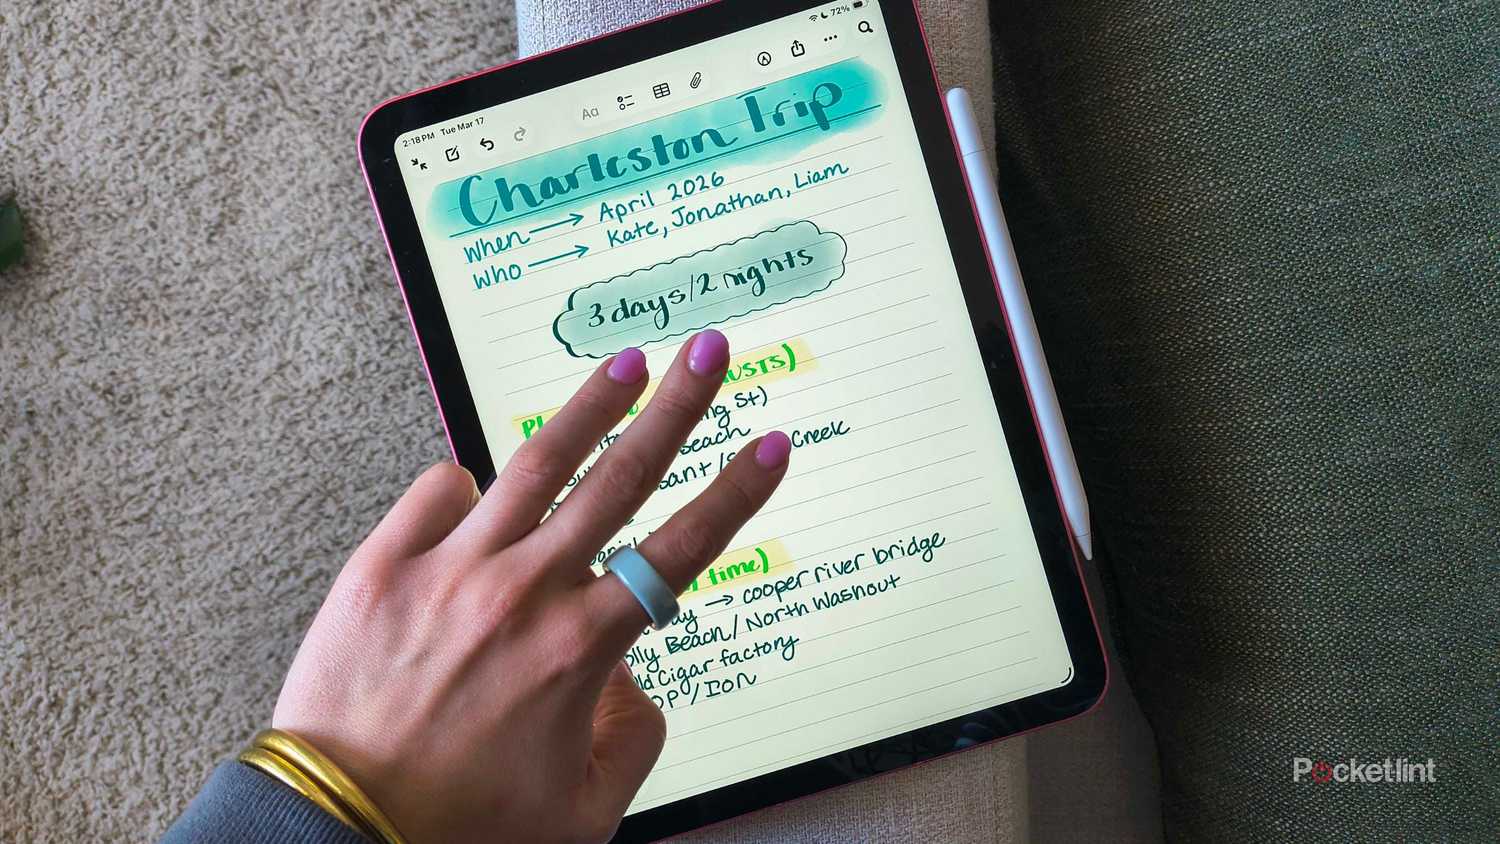 2:18 PM Tue Mar 17
72%
Aa
Charleston Trip
When → April 2026
Who → Kate, Jonathan, Liam
3 days/2 nights
USTS)
ng St)
Beach
sant / Creek
time)
→ cooper river bridge
olly Beach / North Washout
ld Cigar factory
OP / ION
Pocketlint